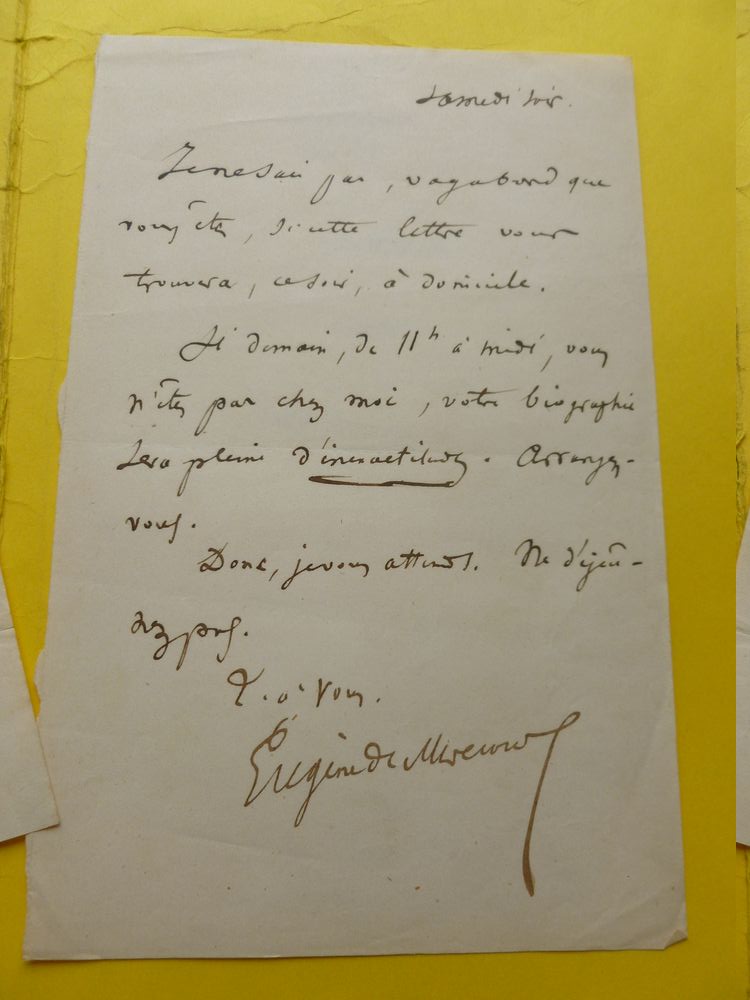 Samedi soir.
Je ne sais pas, vagabond que
vous êtes, si cette lettre vous
trouvera, ce soir, à domicile.
Si demain, de 11h à midi, vous
n'êtes pas chez moi, votre biographie
sera pleine d'inexactitudes. Arrangez-
vous.
Donc, je vous attends. Ne déjeû-
nez pas.
T. à vous.
Eugène de Mirecourt